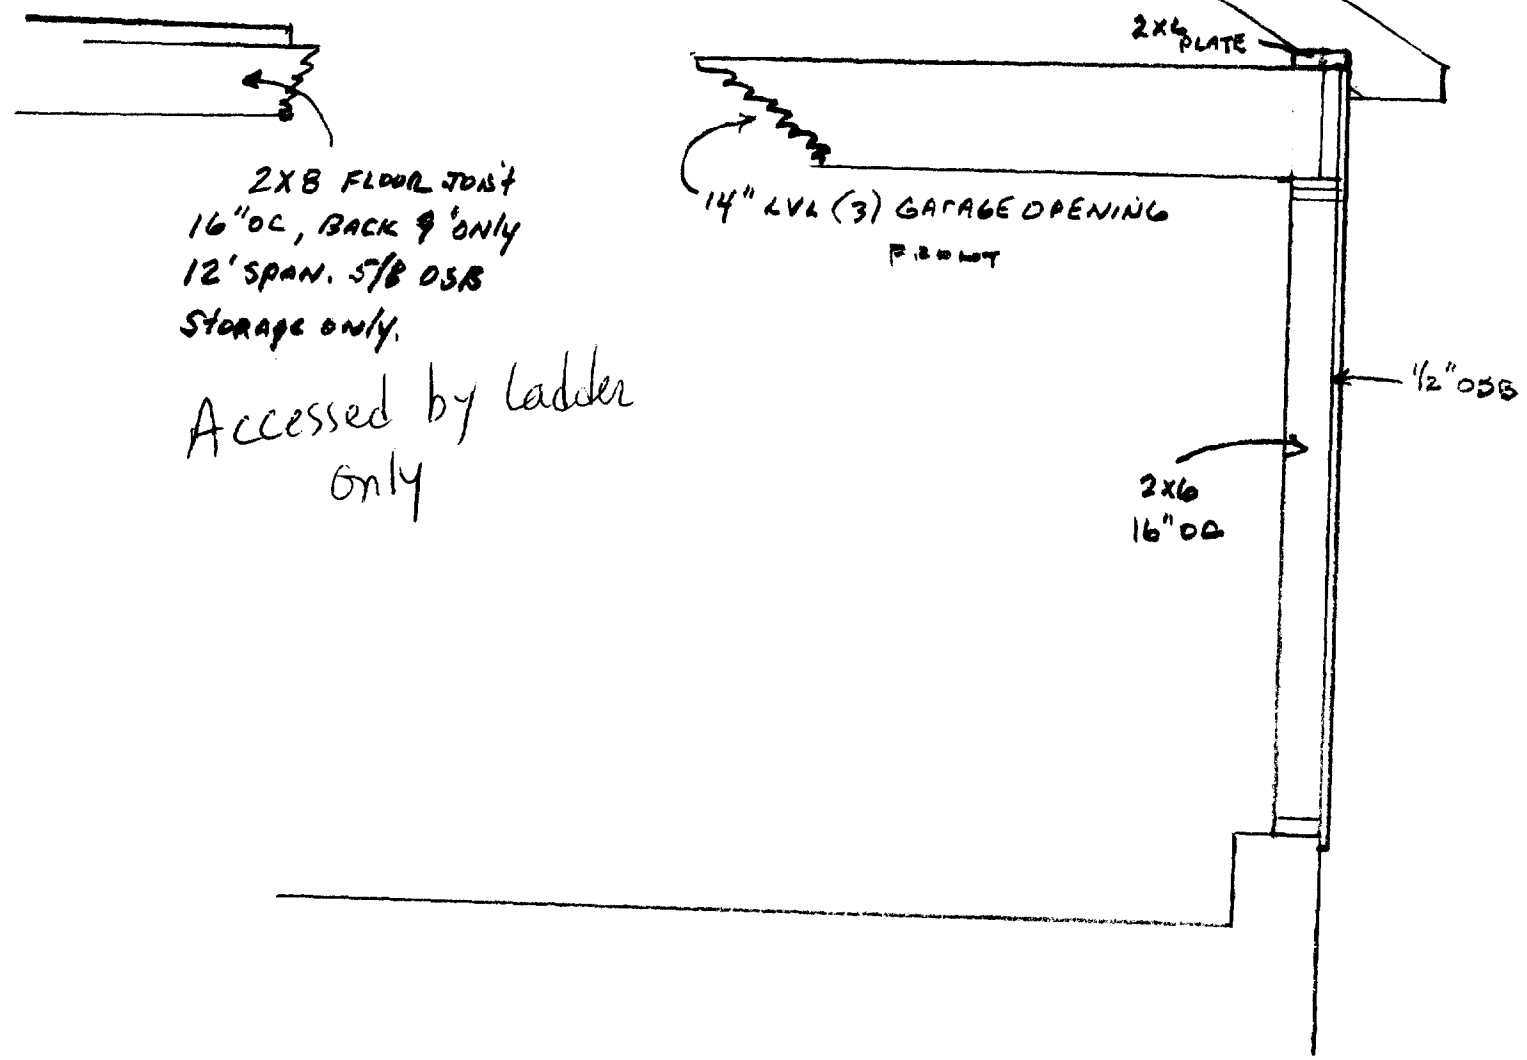 2X6
PLATE
2X8 FLOOR JOIST
16" OC, BACK 9' ONLY
12' SPAN. 5/8 OSB
STORAGE ONLY.
Accessed by ladder
only
14" LVL (3) GARAGE OPENING
1/2" OSB
2X6
16" OC